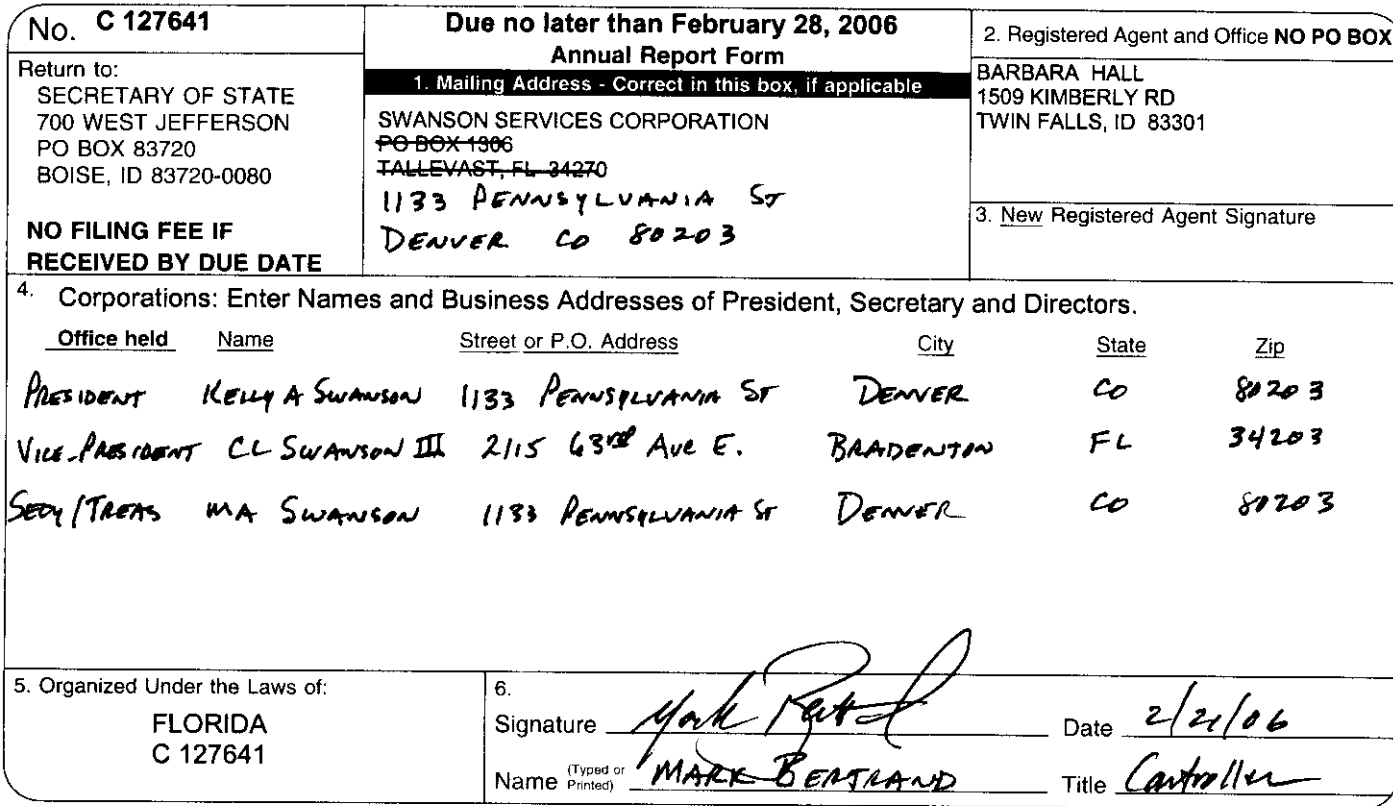 No. C 127641
Return to:
SECRETARY OF STATE
700 WEST JEFFERSON
PO BOX 83720
BOISE, ID 83720-0080
NO FILING FEE IF
RECEIVED BY DUE DATE
Due no later than February 28, 2006
Annual Report Form
1. Mailing Address - Correct in this box, if applicable
SWANSON SERVICES CORPORATION
PO BOX 1306
TALLEVAST, FL 34270
1133 PENNSYLVANIA ST
DENVER CO 80203
2. Registered Agent and Office NO PO BOX
BARBARA HALL
1509 KIMBERLY RD
TWIN FALLS, ID 83301
3. New Registered Agent Signature
4. Corporations: Enter Names and Business Addresses of President, Secretary and Directors.
Office held Name Street or P.O. Address City State Zip
PRESIDENT KELLY A SWANSON 1133 PENNSYLVANIA ST DENVER CO 80203
VICE-PRESIDENT CL SWANSON III 2115 63rd AVE E. BRADENTON FL 34203
SECY/TREAS MA SWANSON 1133 PENNSYLVANIA ST DENVER CO 80203
5. Organized Under the Laws of:
FLORIDA
C 127641
6.
Signature Mark Bertrand Date 2/21/06
Name (Typed or Printed) MARK BERTRAND Title Controller